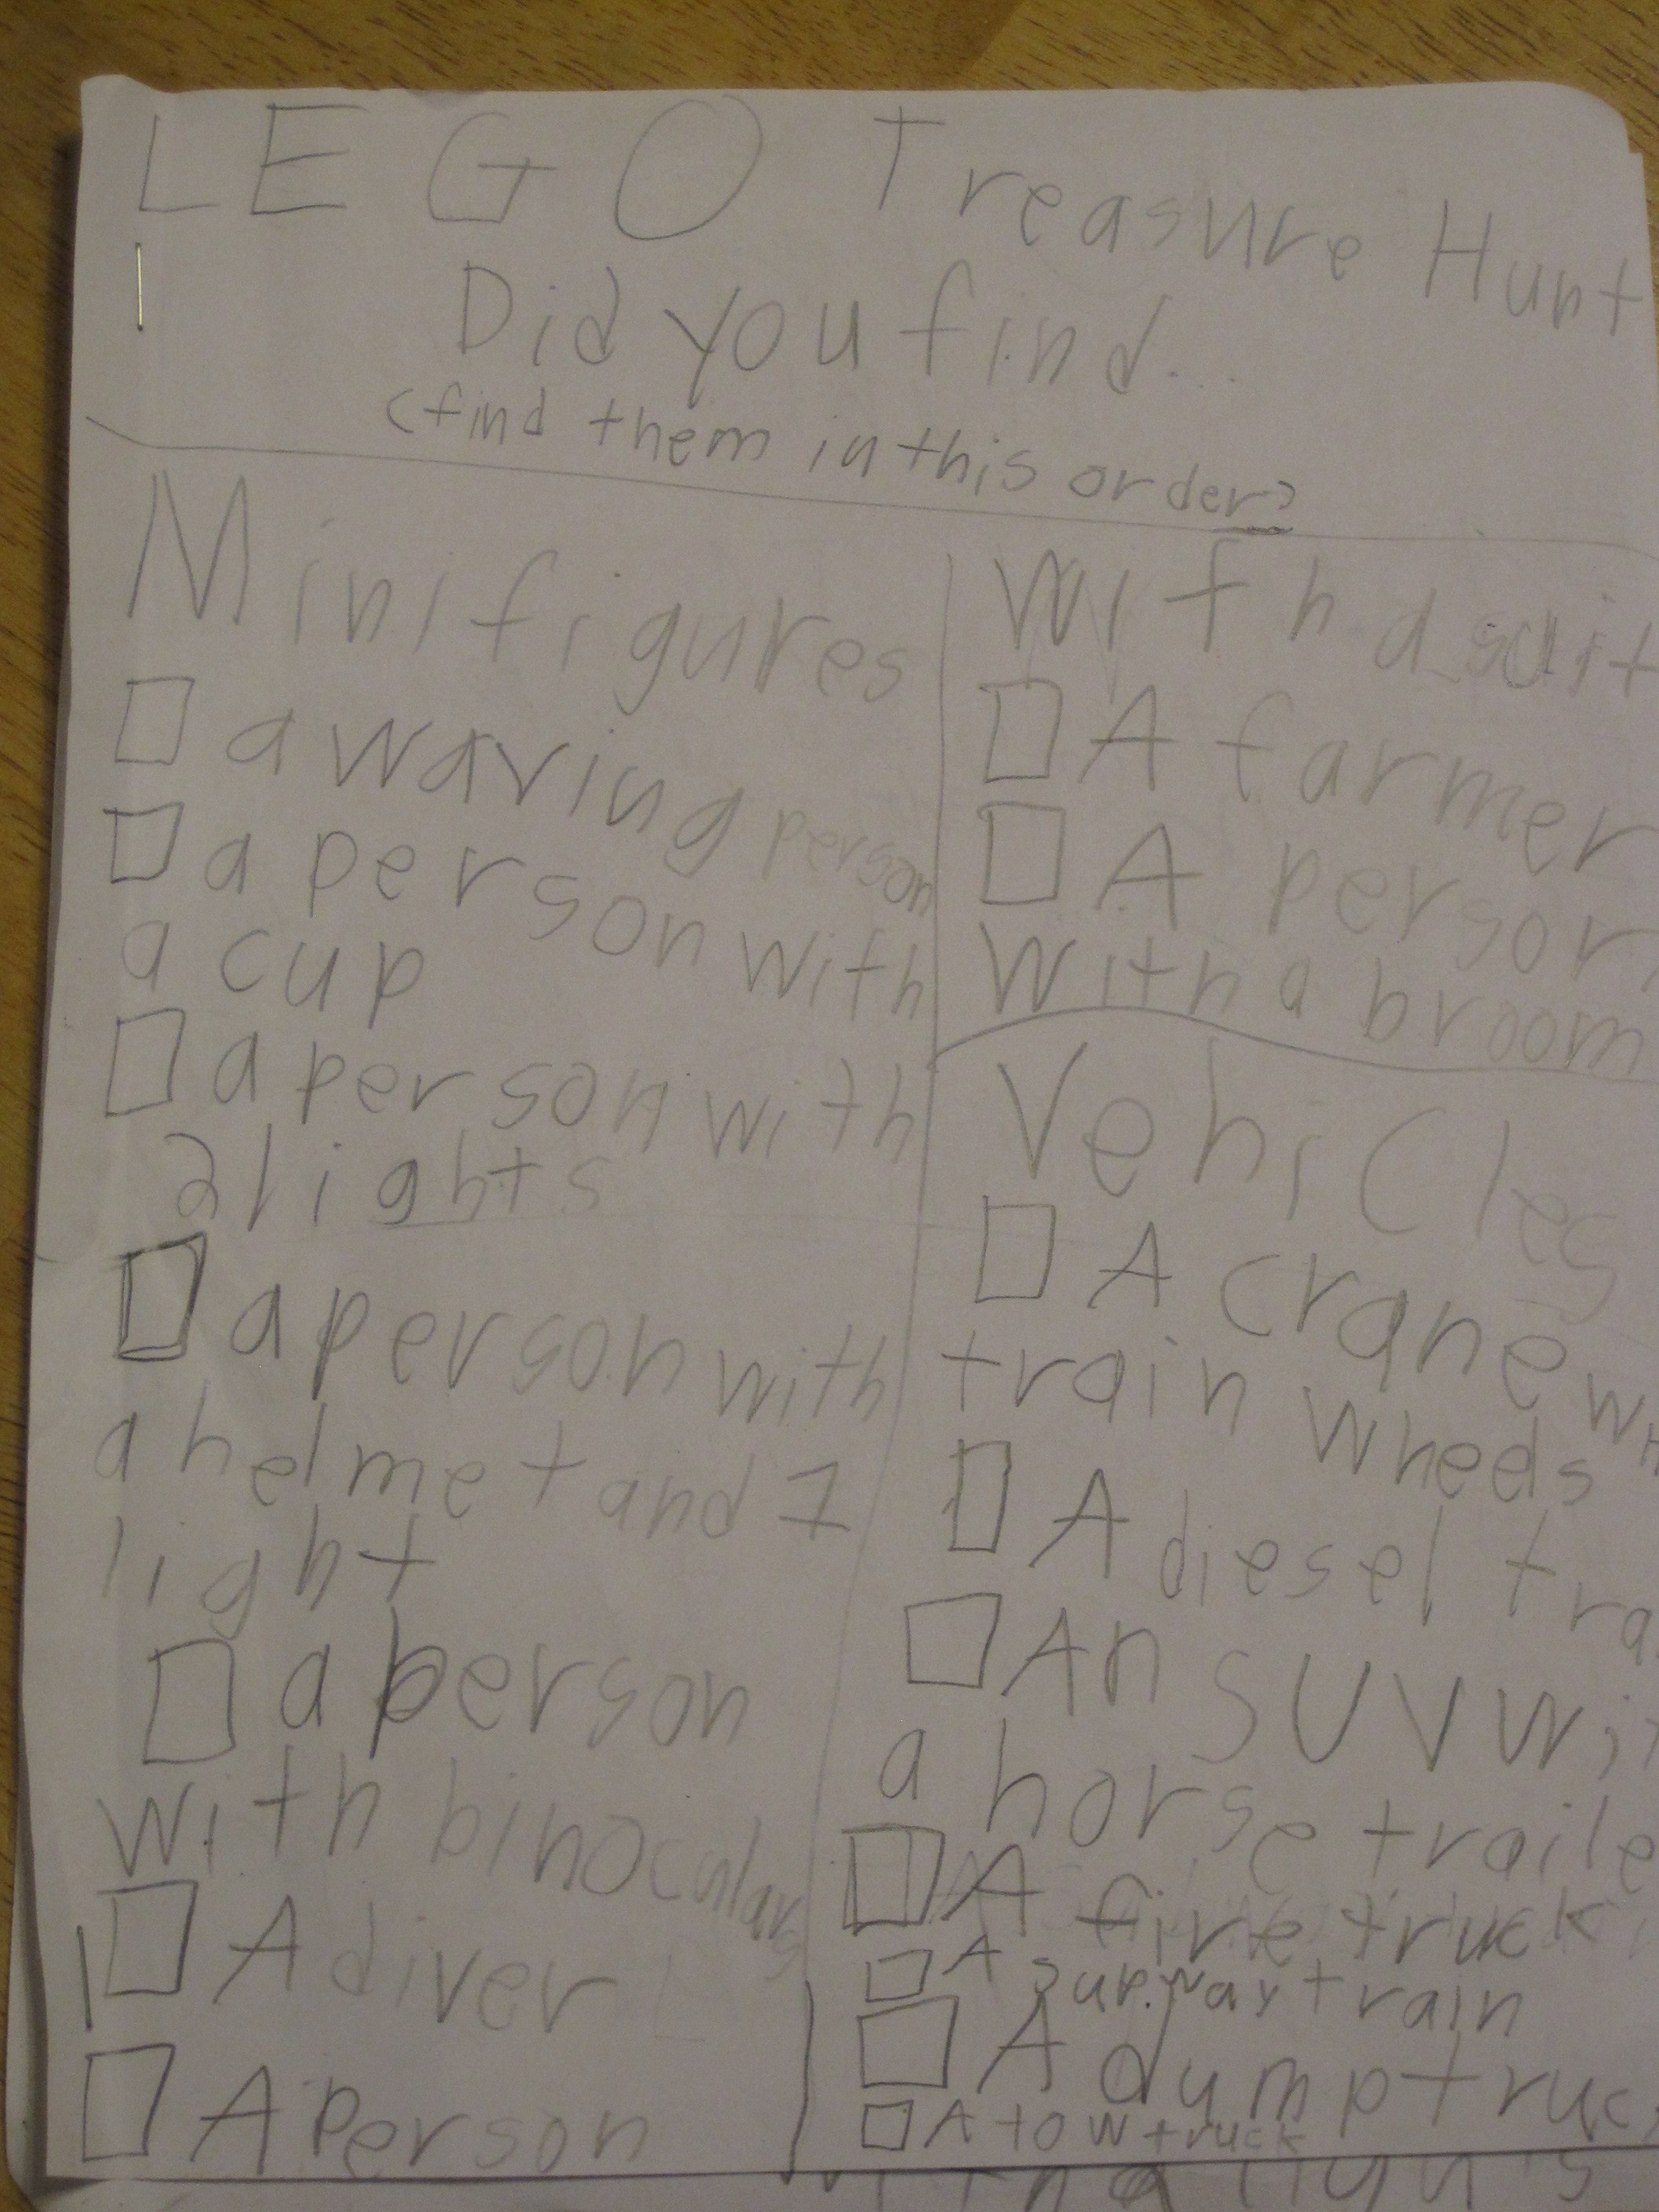 LEGO Treasure Hunt
Did you find...
(find them in this order)
Minifigures
a waving person
a person with
a cup
a person with
2 lights
a person with
a helmet and 1
light
a person
with binoculars
A diver
A person
with a suit
A farmer
A person
with a broom
Vehicles
A crane
train wheels
A diesel
An SUV
a horse
A fire truck
A subway train
A dump
A tow truck